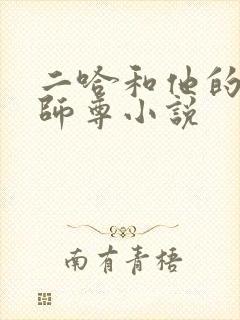 二哈和他的
師尊小説
南有青梧